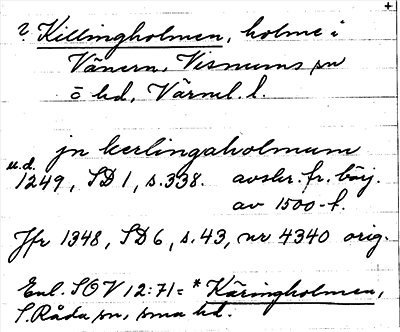 +
? Killingholmen, holme i
Vänern, Visnums sn
o hd, Värml. l.
jn kerlingaholmum
u.d.
1249, SD 1, s. 338. avskr. fr. börj.
av 1500-t.
Jfr 1348, SD 6, s. 43, nr 4340 orig.
Enl. SOV 12:71 = * Käringholmen,
S. Råda sn, sma hd.